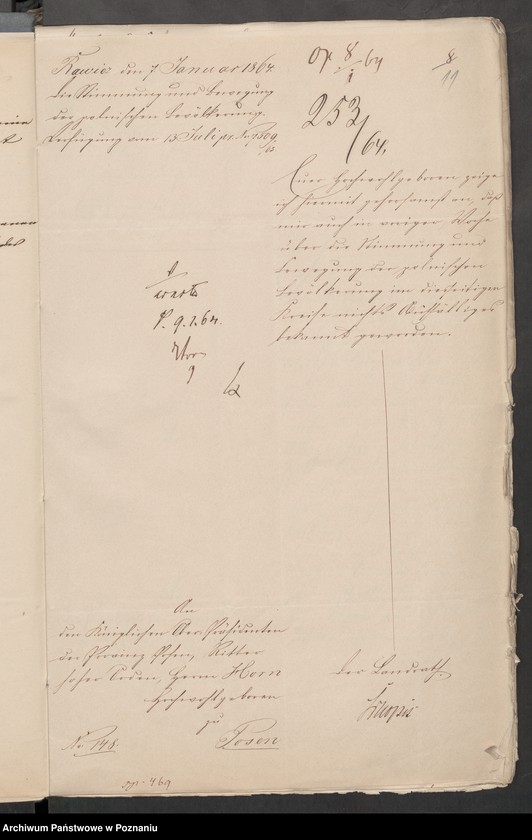 Rawicz den 7 Januar 1864.
Die Stimmung und Bewegung
der polnischen Bevölkerung.
Verfügung vom 15 Juli pr. No
8/I 64
8
11
253/64.
Euer Hochwohlgeboren zeige
ich hiermit gehorsamst an, daß
mir auch in voriger Woche
über die Stimmung und
Bewegung der polnischen
Bevölkerung im diesseitigen
Kreise nichts Auffälliges
bekannt geworden.
P. 9.1.64.
An
den Königlichen Ober-Präsidenten
der Provinz Posen, Ritter
hoher Orden, Herrn Horn
Hochwohlgeboren
zu
Posen
No 148.
Der Landrath
Archiwum Państwowe w Poznaniu